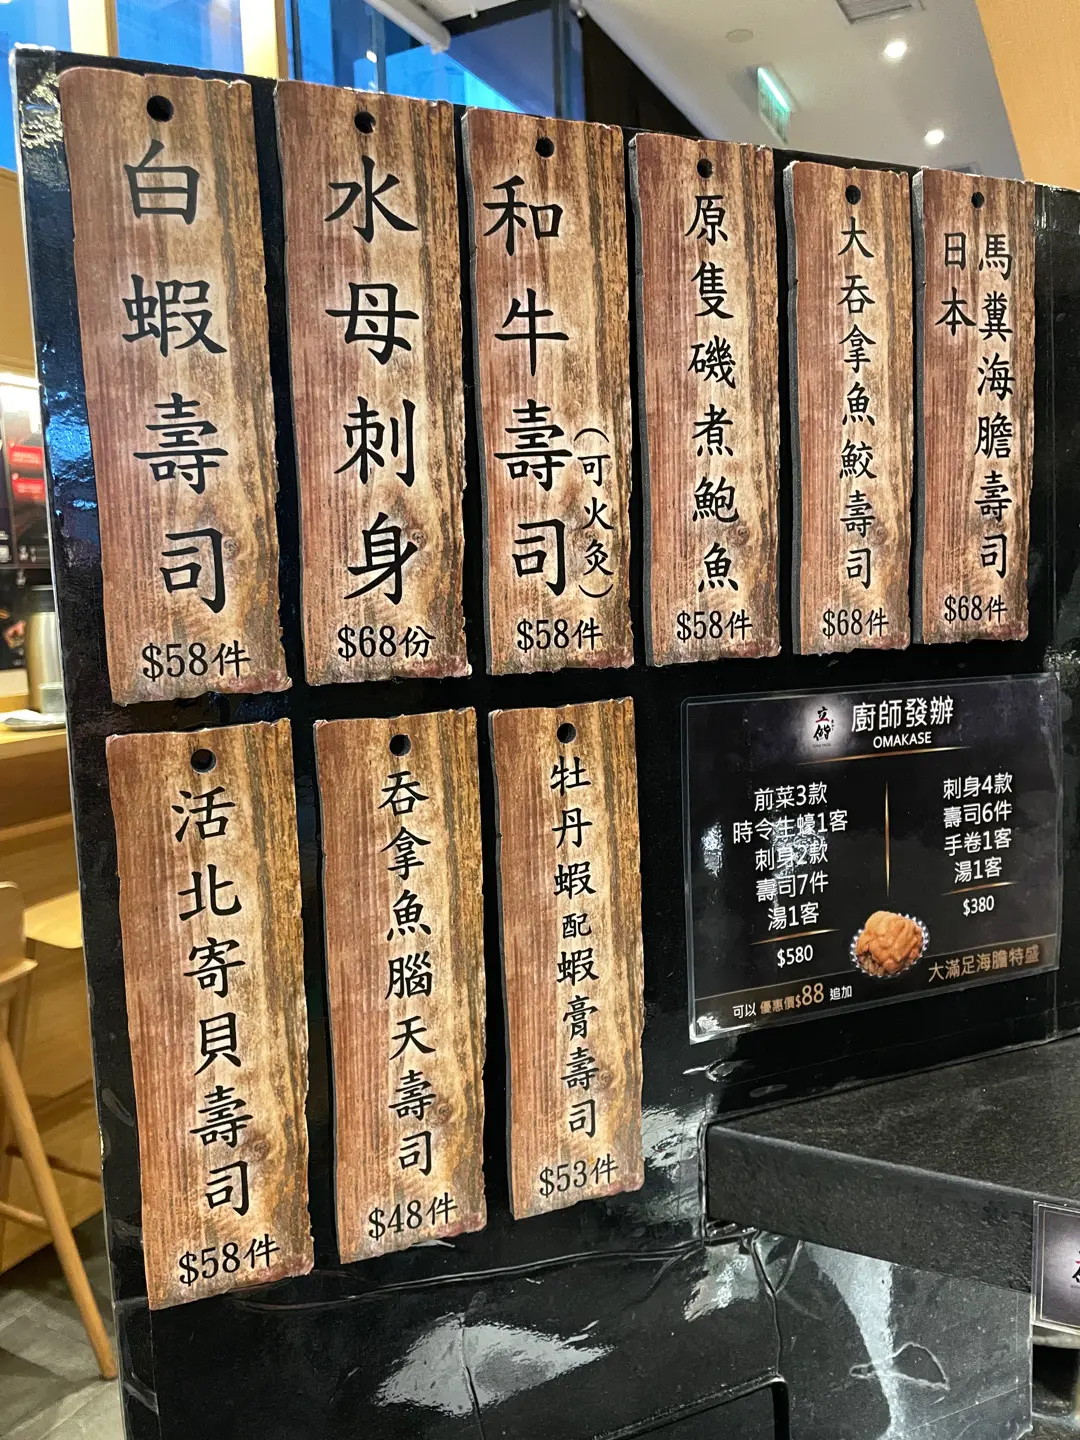 白蝦壽司
$58件
水母刺身
$68份
和牛壽司
(可火灸)
$58件
原隻磯煮鮑魚
$58件
大吞拿魚鮫壽司
$68件
日本
馬糞海膽壽司
$68件
活北寄貝壽司
$58件
吞拿魚腦天壽司
$48件
牡丹蝦配蝦膏壽司
$53件
廚師發辦
OMAKASE
前菜3款
時令生蠔1客
刺身2款
壽司7件
湯1客
$580
刺身4款
壽司6件
手卷1客
湯1客
$380
大滿足海膽特盛
可以 優惠價$88 追加